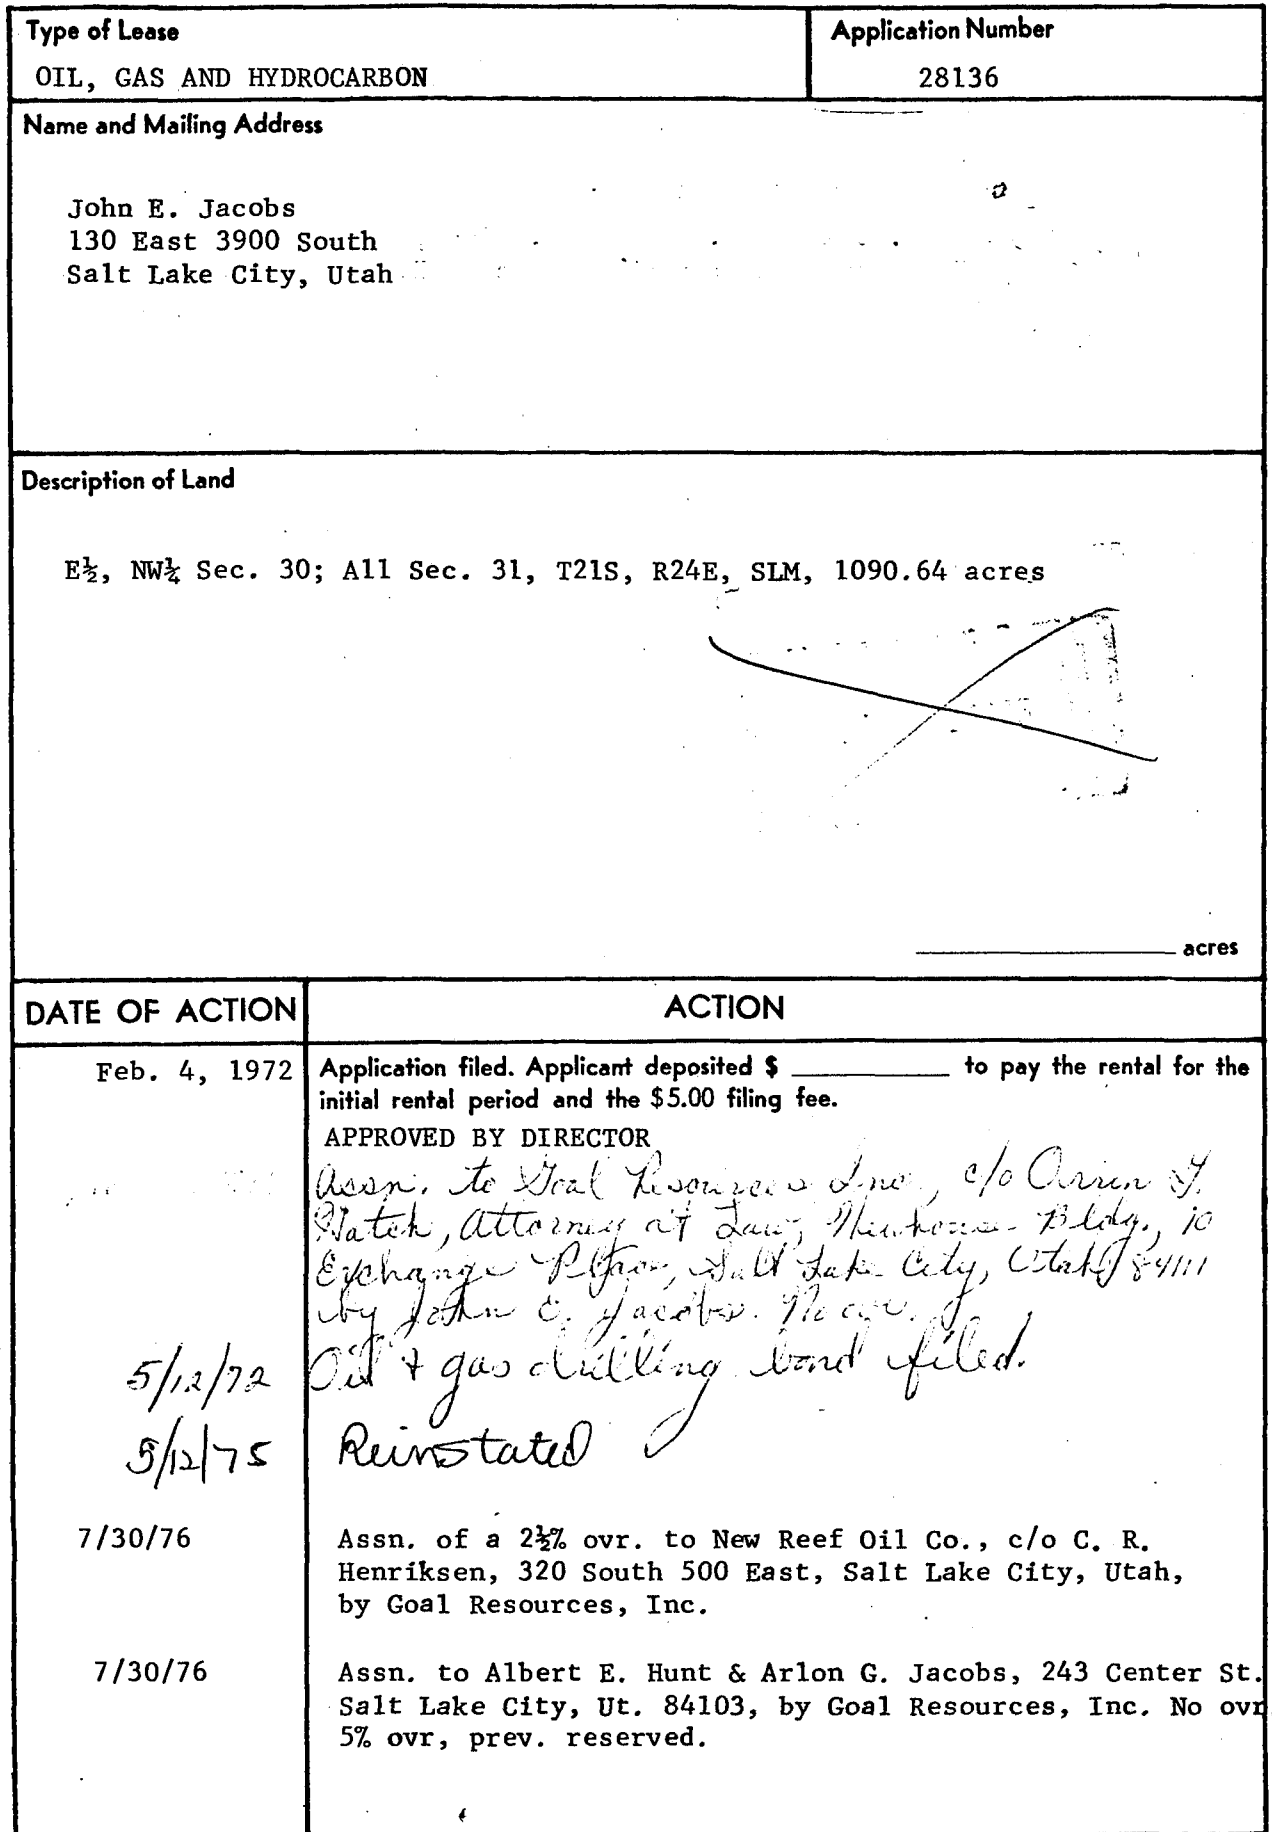 Type of Lease
Application Number
OIL, GAS AND HYDROCARBON
28136
Name and Mailing Address
John E. Jacobs
130 East 3900 South
Salt Lake City, Utah
Description of Land
E½, NW¼ Sec. 30; All Sec. 31, T21S, R24E, SLM, 1090.64 acres
acres
DATE OF ACTION
ACTION
Feb. 4, 1972
Application filed. Applicant deposited $ __________ to pay the rental for the
initial rental period and the $5.00 filing fee.
APPROVED BY DIRECTOR
Assn. to Goal Resources Inc., c/o Orrin G.
Hatch, Attorney at Law, Newhouse Bldg., 10
Exchange Place, Salt Lake City, Utah 84111
by John E. Jacobs. No ovr.
5/12/72
Oil & gas drilling bond filed.
5/12/75
Reinstated
7/30/76
Assn. of a 2½% ovr. to New Reef Oil Co., c/o C. R.
Henriksen, 320 South 500 East, Salt Lake City, Utah,
by Goal Resources, Inc.
7/30/76
Assn. to Albert E. Hunt & Arlon G. Jacobs, 243 Center St.
Salt Lake City, Ut. 84103, by Goal Resources, Inc. No ovr
5% ovr, prev. reserved.